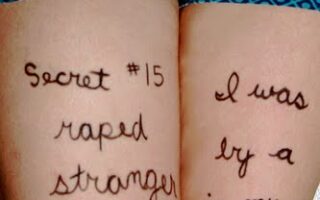 Secret #15 I was
raped by a
stranger